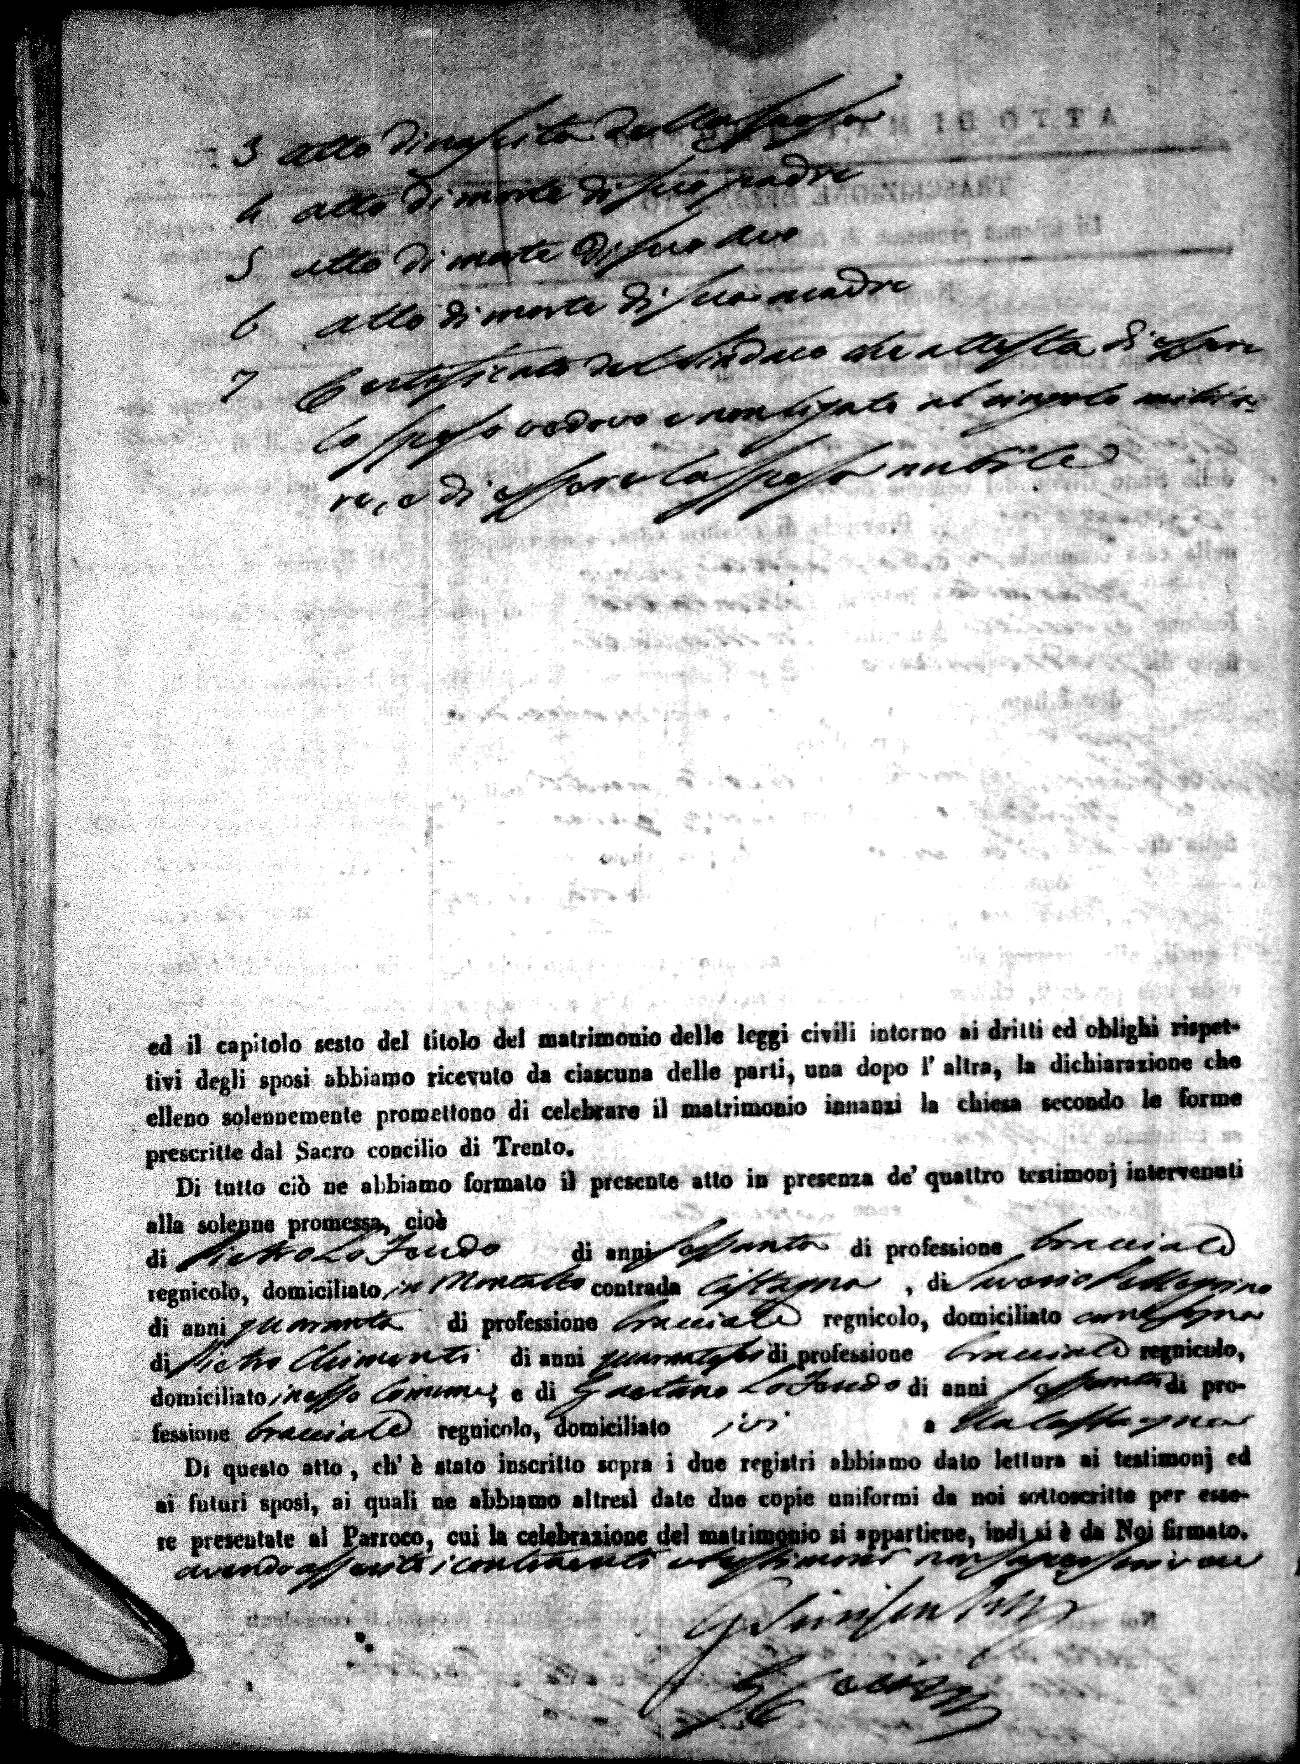 3 atto di nascita della sposa
4 atto di morte di suo padre
5 atto di morte di suo avo
6 atto di morte di sua madre
7 Certificato del Sindaco che attesta di essere
lo sposo vedovo e non ligato al cingolo milita-
re, e di essere la sposa nubile
ed il capitolo sesto del titolo del matrimonio delle leggi civili intorno ai dritti ed oblighi rispet-
tivi degli sposi abbiamo ricevuto da ciascuna delle parti, una dopo l' altra, la dichiarazione che
elleno solennemente promettono di celebrare il matrimonio innanzi la chiesa secondo le forme
prescritte dal Sacro concilio di Trento.
Di tutto ciò ne abbiamo formato il presente atto in presenza de' quattro testimonj intervenuti
alla solenne promessa, cioè
di Pietro Lo Feudo di anni sessanta di professione bracciale
regnicolo, domiciliato in Montalto contrada , di Saverio Pellegrino
di anni quaranta di professione bracciale regnicolo, domiciliato
di Pietro Chimenti di anni di professione bracciale regnicolo,
domiciliato in esso Comune, e di Gaetano Lo Feudo di anni sessanta di pro-
fessione bracciale regnicolo, domiciliato ivi a
Di questo atto, ch' è stato inscritto sopra i due registri abbiamo dato lettura ai testimonj ed
ai futuri sposi, ai quali ne abbiamo altresì date due copie uniformi da noi sottoscritte per esse-
re presentate al Parroco, cui la celebrazione del matrimonio si appartiene, indi si è da Noi firmato.
avendo asserito i contraenti e testimoni non saper scrivere